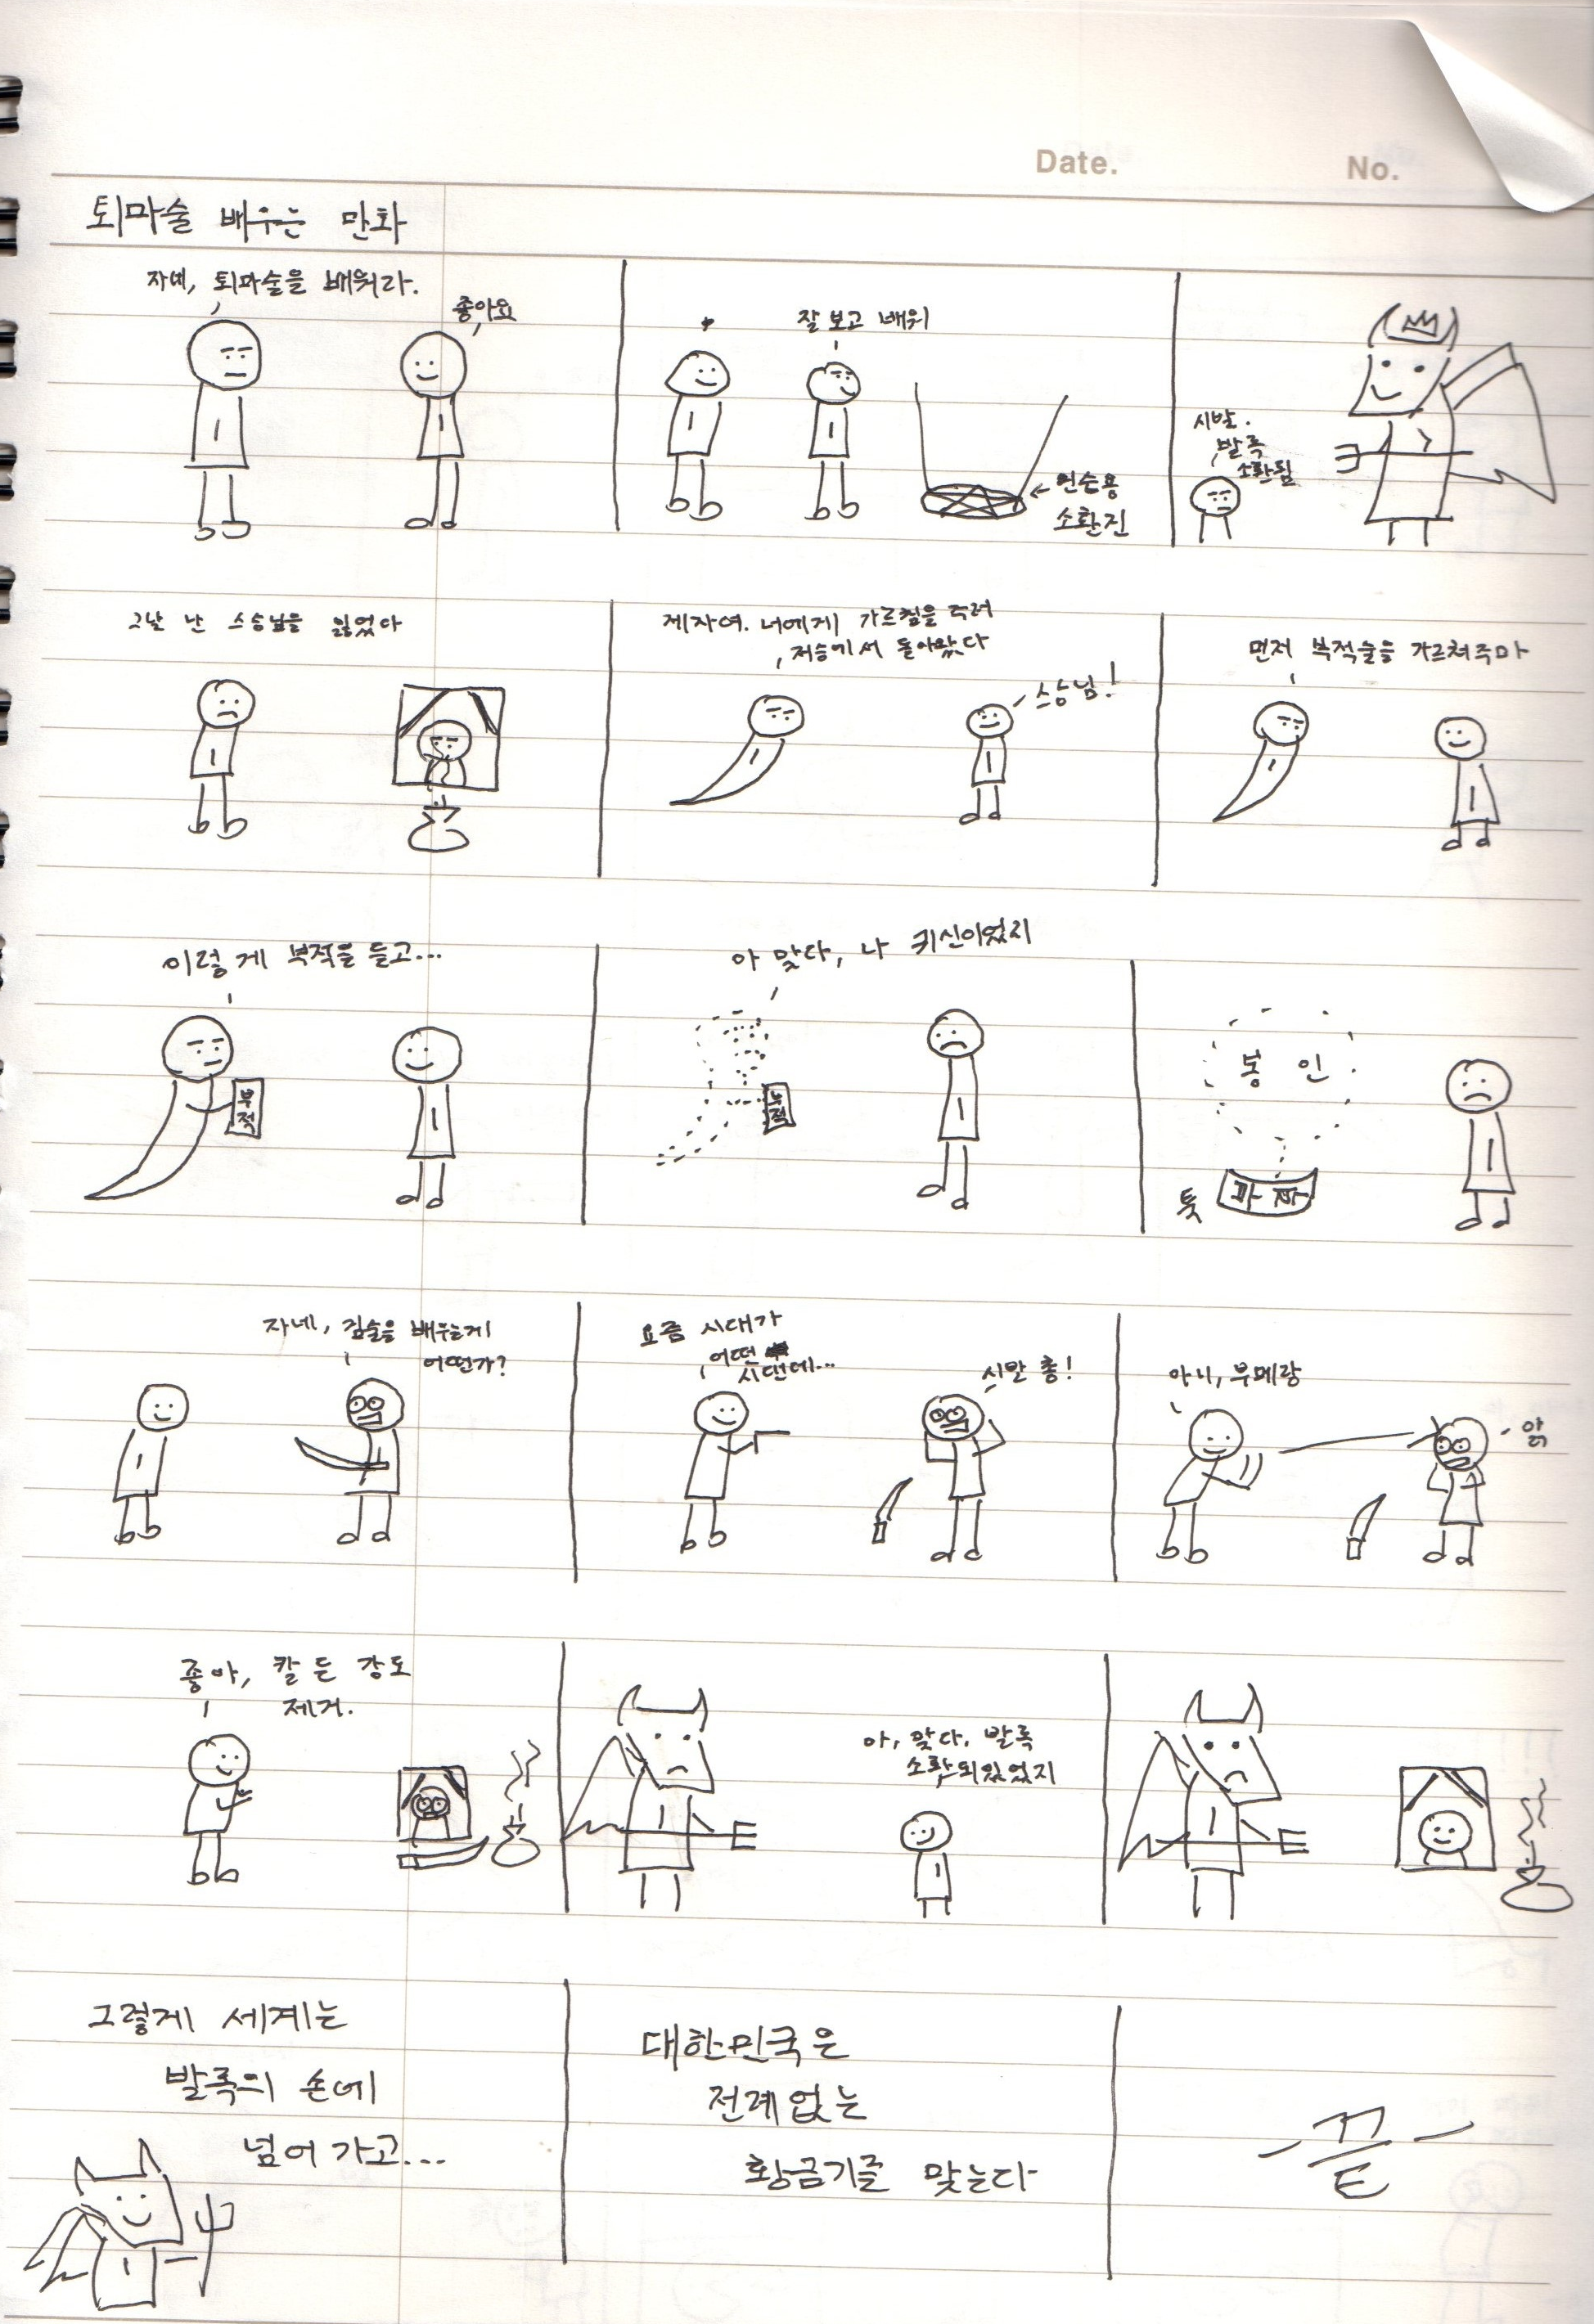 Date.
No.
퇴마술 배우는 만화
자네, 퇴마술을 배워라.
좋아요
잘 보고 배워
연습용
소환진
시발.
발록
소환됨
그날 난 스승님을 잃었다
제자여. 너에게 가르침을 주러
저승에서 돌아왔다
스승님!
먼저 부적술을 가르쳐주마
이렇게 부적을 들고...
부적
아 맞다, 나 귀신이었지
부적
봉인
툭
자네, 검술을 배우는게
어떤가?
요즘 시대가
어떤
시댄데...
시발 총!
아니, 부메랑
앍
좋아, 칼 든 강도
제거.
아, 맞다. 발록
소환되있었지
그렇게 세계는
발록의 손에
넘어가고...
대한민국은
전례없는
황금기를 맞는다
- 끝 -